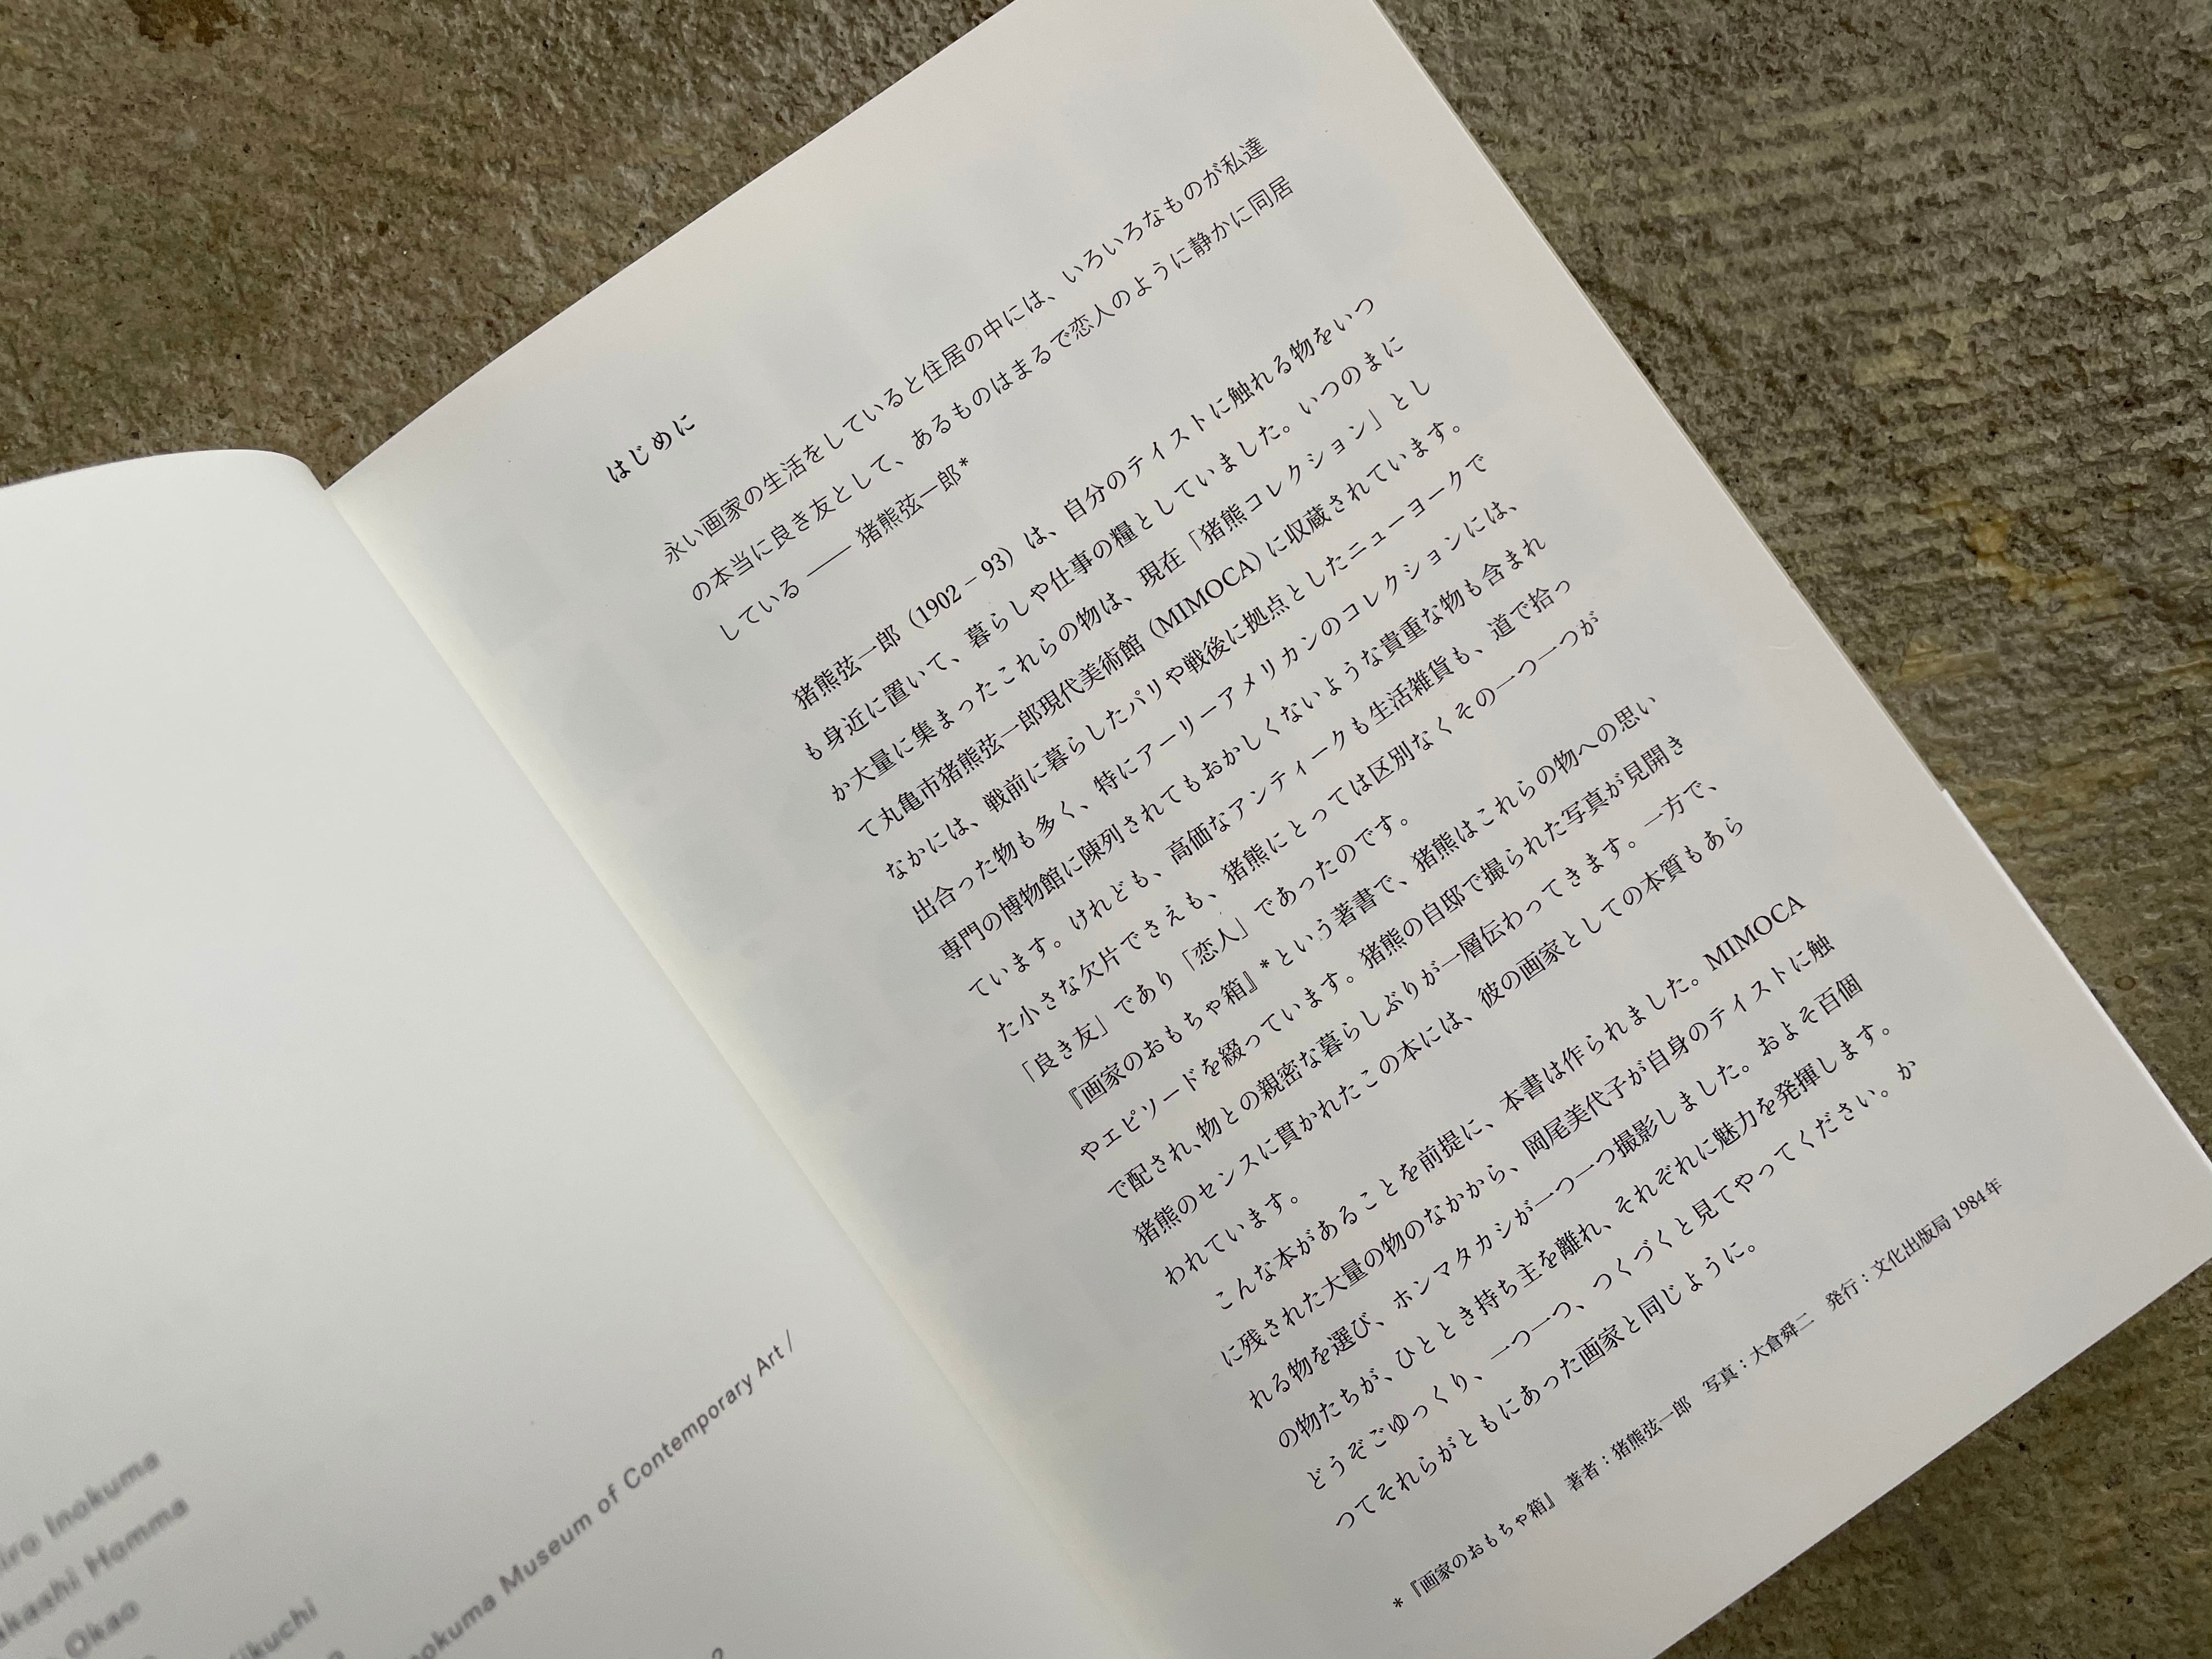 iro Inokuma
akashi Homma
Okao
ikuchi
nokuma Museum of Contemporary Art /
はじめに
永い画家の生活をしていると住居の中には、いろいろなものが私達
の本当に良き友として、あるものはまるで恋人のように静かに同居
している —— 猪熊弦一郎*
猪熊弦一郎（1902 – 93）は、自分のテイストに触れる物をいつ
も身近に置いて、暮らしや仕事の糧としていました。いつのまに
か大量に集まったこれらの物は、現在「猪熊コレクション」とし
て丸亀市猪熊弦一郎現代美術館（MIMOCA）に収蔵されています。
なかには、戦前に暮らしたパリや戦後に拠点としたニューヨークで
出合った物も多く、特にアーリーアメリカンのコレクションには、
専門の博物館に陳列されてもおかしくないような貴重な物も含まれ
ています。けれども、高価なアンティークも生活雑貨も、道で拾っ
た小さな欠片でさえも、猪熊にとっては区別なくその一つ一つが
「良き友」であり「恋人」であったのです。
『画家のおもちゃ箱』*という著書で、猪熊はこれらの物への思い
やエピソードを綴っています。猪熊の自邸で撮られた写真が見開き
で配され、物との親密な暮らしぶりが一層伝わってきます。一方で、
猪熊のセンスに貫かれたこの本には、彼の画家としての本質もあら
われています。
こんな本があることを前提に、本書は作られました。MIMOCA
に残された大量の物のなかから、岡尾美代子が自身のテイストに触
れる物を選び、ホンマタカシが一つ一つ撮影しました。およそ百個
の物たちが、ひととき持ち主を離れ、それぞれに魅力を発揮します。
どうぞごゆっくり、一つ一つ、つくづくと見てやってください。か
つてそれらがともにあった画家と同じように。
*『画家のおもちゃ箱』 著者：猪熊弦一郎 写真：大倉舜二 発行：文化出版局 1984年